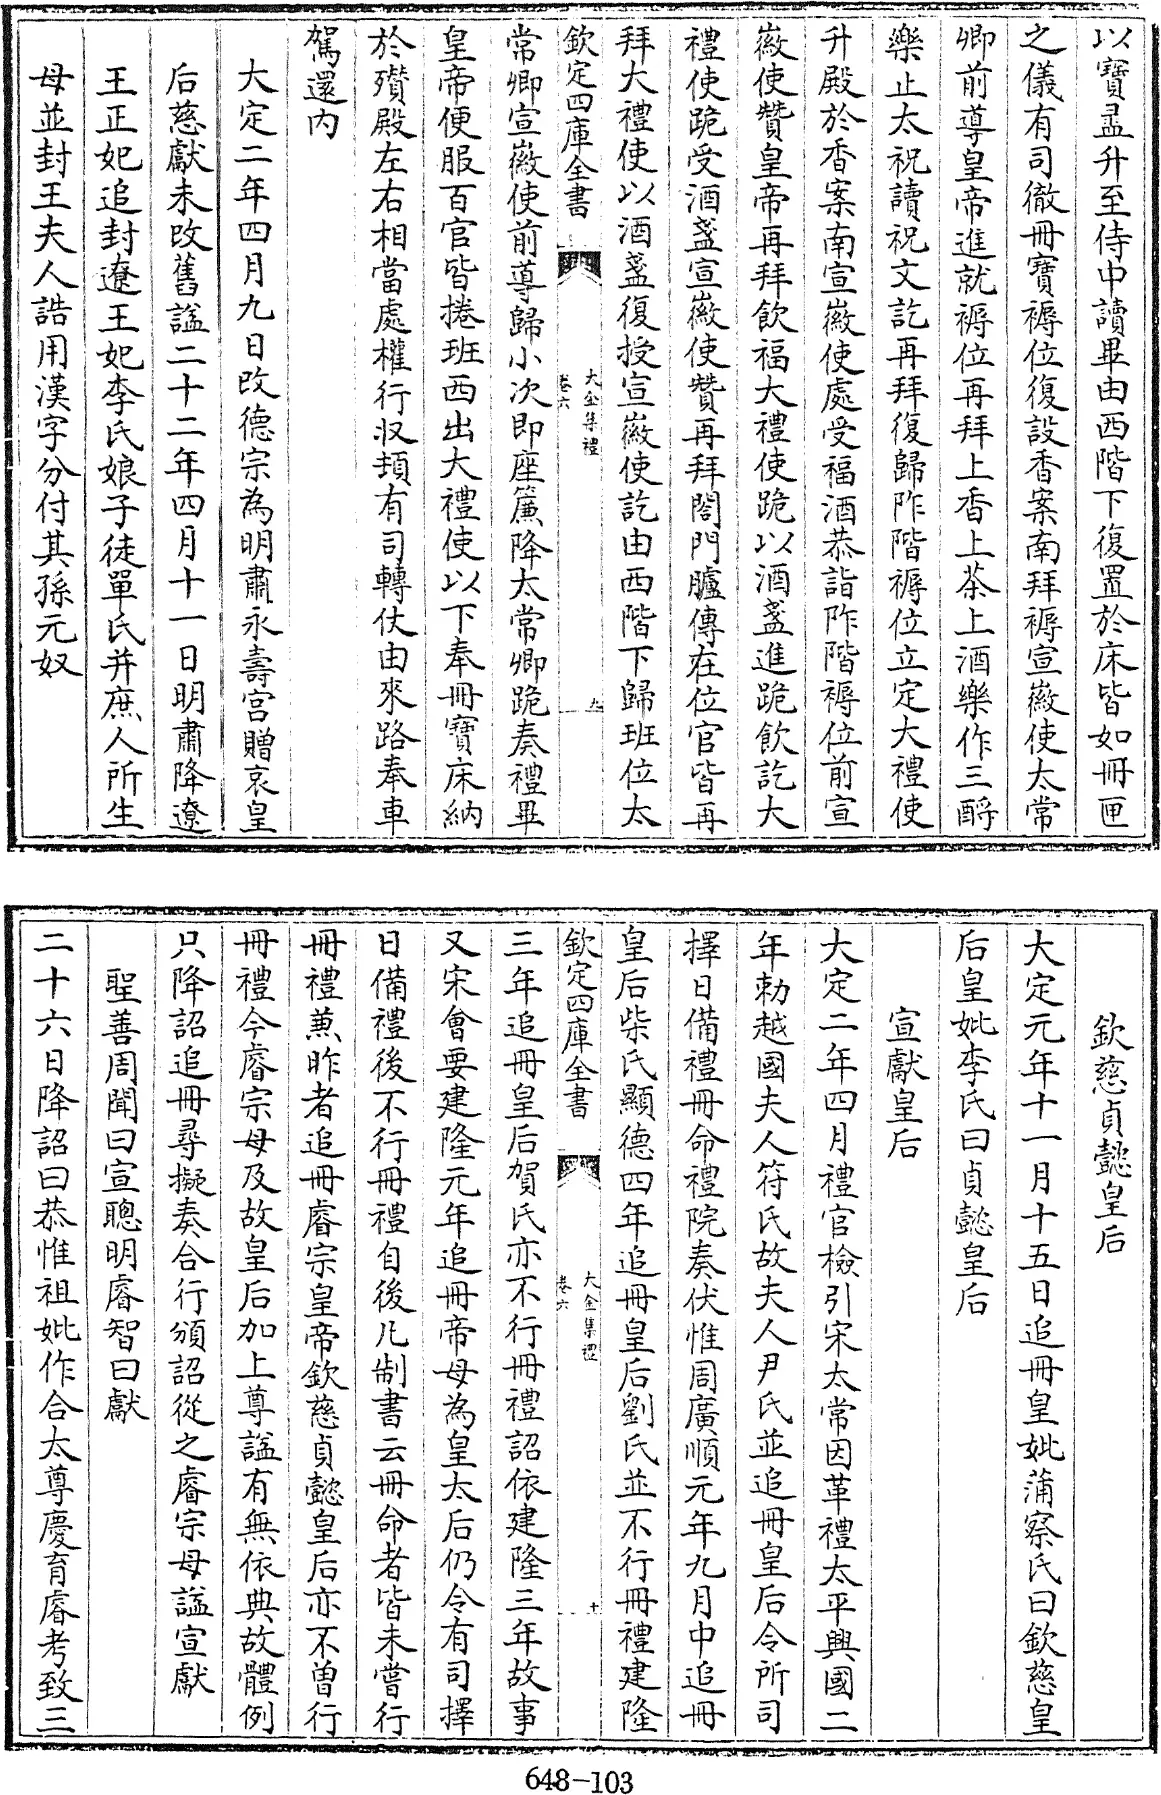 以寶盝升至侍中讀畢由西階下復置於床皆如冊匣
之儀有司徹冊寶褥位復設香案南拜褥宣徽使太常
卿前導皇帝進就褥位再拜上香上茶上酒樂作三酹
樂止太祝讀祝文訖再拜復歸阼階褥位立定大禮使
升殿於香案南宣徽使處受福酒恭詣阼階褥位前宣
徽使贊皇帝再拜飲福大禮使跪以酒盞進跪飲訖大
禮使跪受酒盞宣徽使贊再拜閤門臚傳在位官皆再
拜大禮使以酒盞復授宣徽使訖由西階下歸班位太
欽定四庫全書
大金集禮
卷六
九
常卿宣徽使前導歸小次即座簾降太常卿跪奏禮畢
皇帝便服百官皆捲班西出大禮使以下奉冊寶床納
於殯殿左右相當處權行収頓有司轉仗由來路奉車
駕還内
大定二年四月九日改德宗為明肅永壽宮贈哀皇
后慈獻未改舊諡二十二年四月十一日明肅降遼
王正妃追封遼王妃李氏娘子徒單氏并庶人所生
母並封王夫人誥用漢字分付其孫元奴
欽慈貞懿皇后
大定元年十一月十五日追冊皇妣蒲察氏曰欽慈皇
后皇妣李氏曰貞懿皇后
宣獻皇后
大定二年四月禮官檢引宋太常因革禮太平興國二
年勅越國夫人符氏故夫人尹氏並追冊皇后令所司
擇日備禮冊命禮院奏伏惟周廣順元年九月中追冊
皇后柴氏顯德四年追冊皇后劉氏並不行冊禮建隆
欽定四庫全書
大金集禮
卷六
十
三年追冊皇后賀氏亦不行冊禮詔依建隆三年故事
又宋會要建隆元年追冊帝母為皇太后仍令有司擇
日備禮後不行冊禮自後凡制書云冊命者皆未嘗行
冊禮兼昨者追冊睿宗皇帝欽慈貞懿皇后亦不曾行
冊禮今睿宗母及故皇后加上尊諡有無依典故體例
只降詔追冊尋擬奏合行頒詔從之睿宗母諡宣獻
聖善周聞曰宣聰明睿智曰獻
二十六日降詔曰恭惟祖妣作合太尊慶育睿考致三
648-103